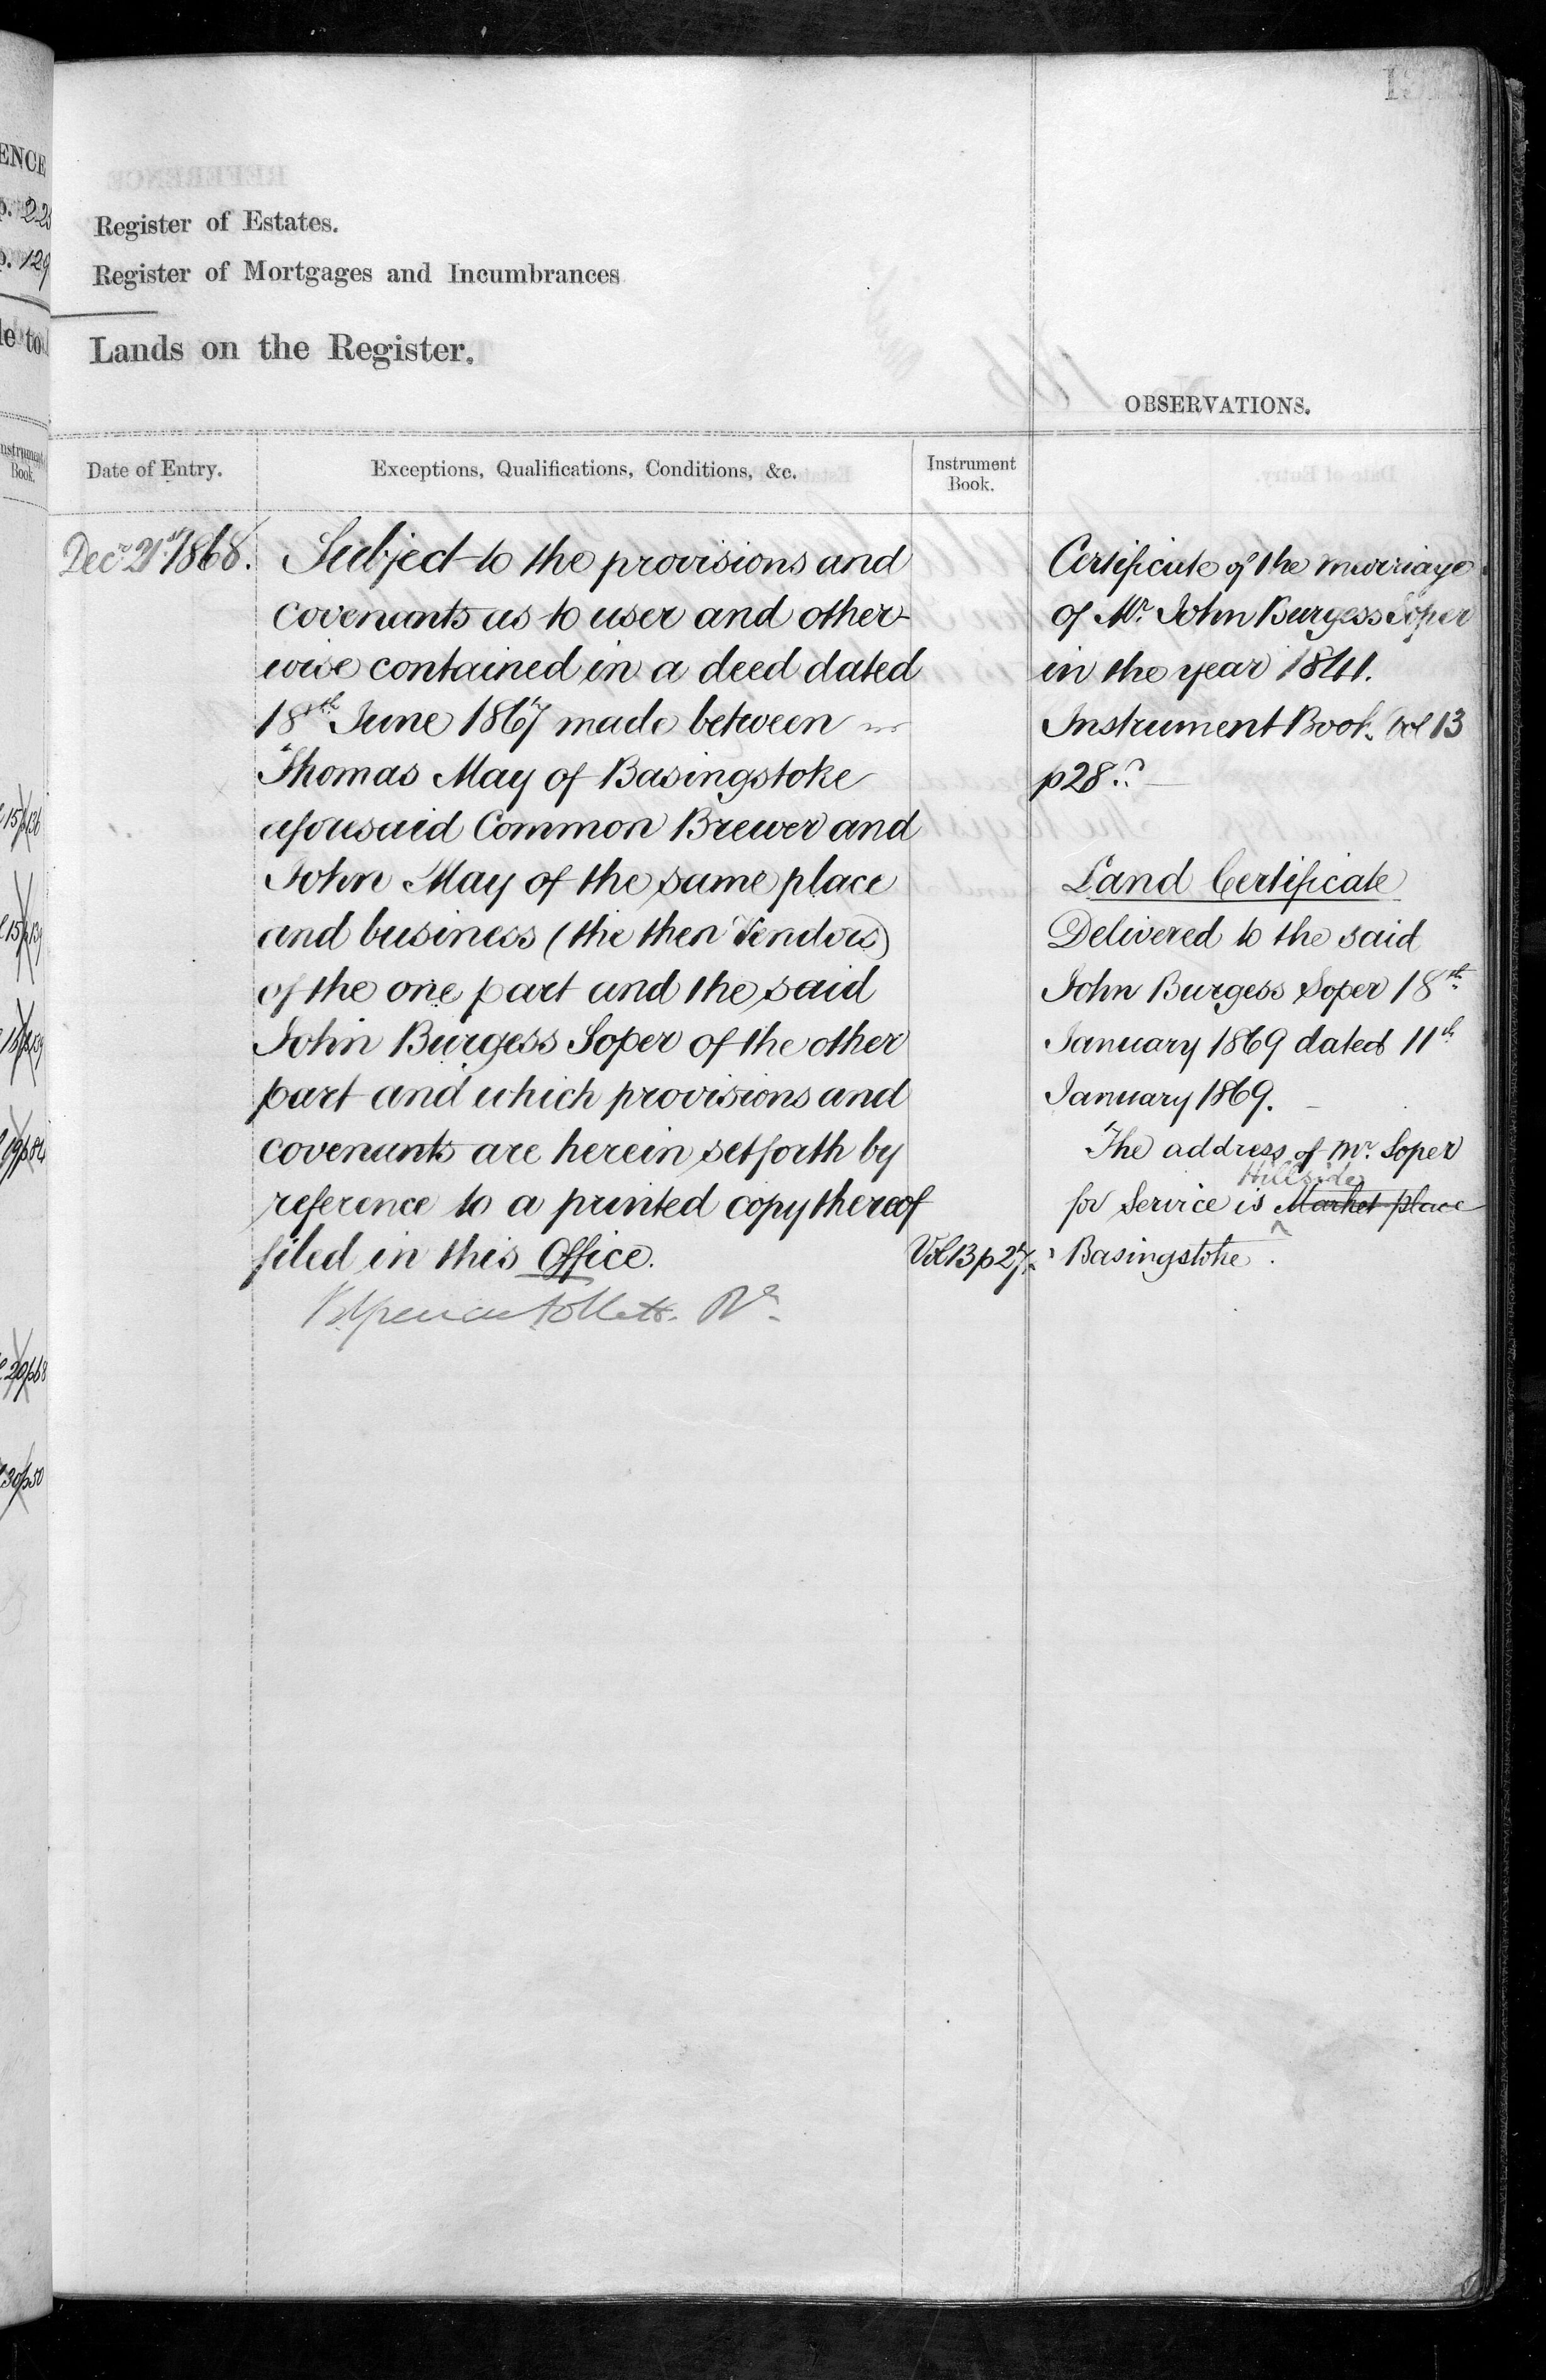 ENCE
p. 129
le to
Instrument
Book.
Register of Estates.
Register of Mortgages and Incumbrances
Lands on the Register.
OBSERVATIONS.
Date of Entry.
Exceptions, Qualifications, Conditions, &c.
Instrument
Book.
Decr 21st 1868.
Subject to the provisions and
covenants as to user and other-
wise contained in a deed dated
18th June 1867 made between
Thomas May of Basingstoke
aforesaid Common Brewer and
John May of the same place
and business (the then Vendors)
of the one part and the said
John Burgess Soper of the other
part and which provisions and
covenants are herein set forth by
reference to a printed copy thereof
filed in this Office.
Vol 13 p 27.
Certificate of the marriage
of Mr. John Burgess Soper
in the year 1841.
Instrument Book. Vol 13
p 28.
Land Certificate
Delivered to the said
John Burgess Soper 18th
January 1869 dated 11th
January 1869.
The address of Mr. Soper
Hillside
for Service is Market place
Basingstoke.